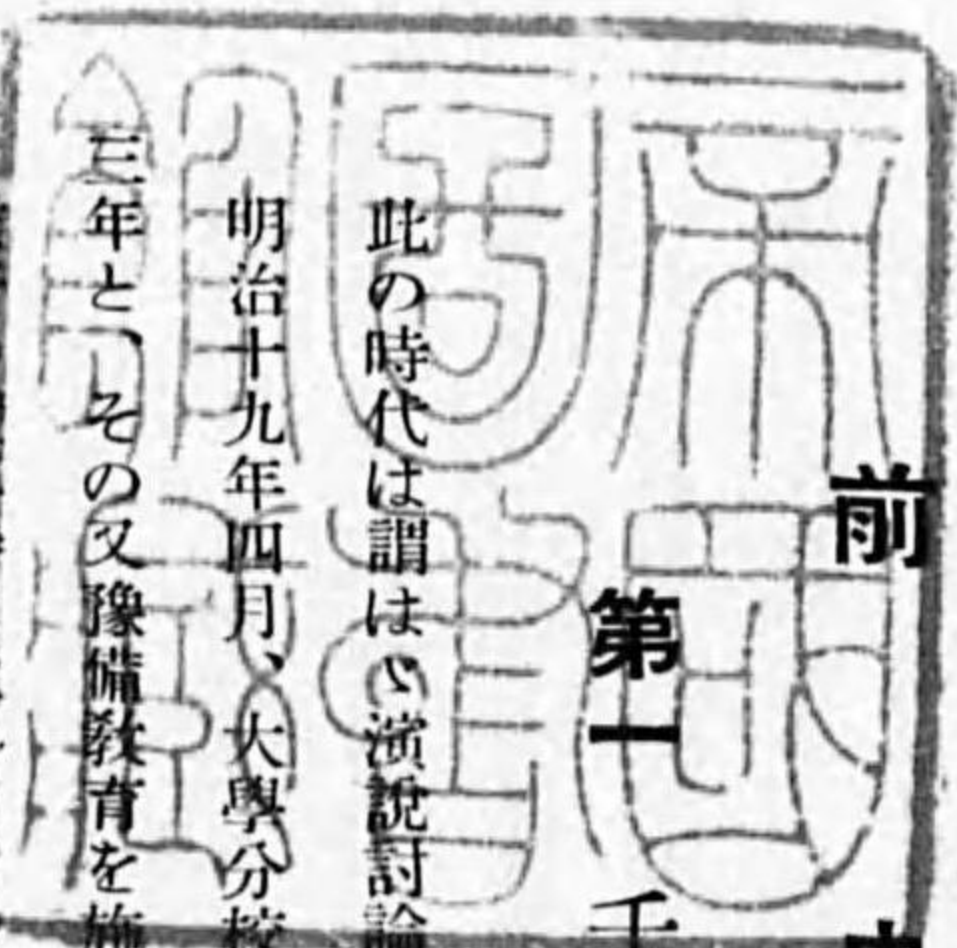 帝國
圖書
館藏
前
第一
此の時代は謂はゞ演說討論
明治十九年四月、大學分校
三年と、その又豫備敎育を施